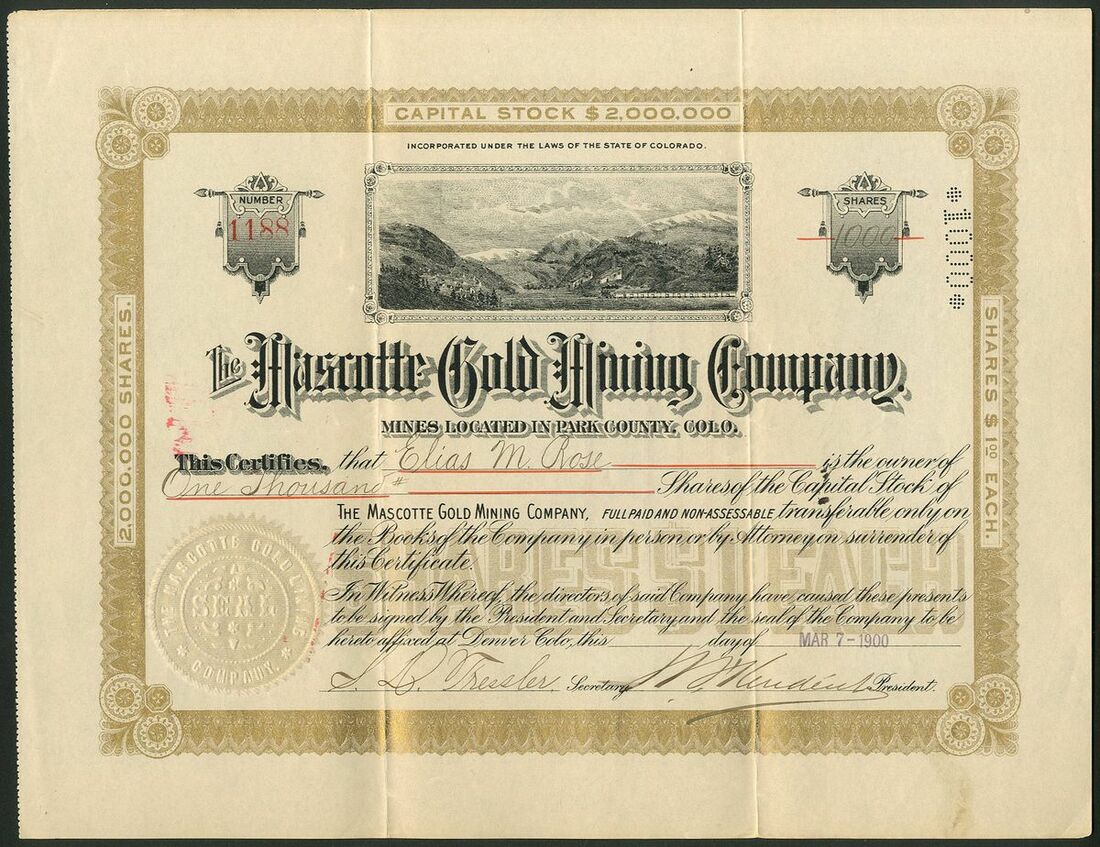 CAPITAL STOCK $2,000,000
INCORPORATED UNDER THE LAWS OF THE STATE OF COLORADO.
NUMBER
1188
SHARES
1000
*1000*
2,000,000 SHARES.
SHARES $1.00 EACH.
The Mascotte Gold Mining Company.
MINES LOCATED IN PARK COUNTY, COLO.
This Certifies, that Elias M. Rose is the owner of
One Thousand Shares of the Capital Stock of
THE MASCOTTE GOLD MINING COMPANY, FULL PAID AND NON-ASSESSABLE transferable only on
the Books of the Company in person or by Attorney on surrender of
this Certificate.
SHARES $1 EACH
In Witness Whereof, the directors of said Company have caused these presents
to be signed by the President and Secretary and the seal of the Company to be
hereto affixed at Denver Colo, this day of MAR 7-1900
S. D. Tressler Secretary President.
THE MASCOTTE GOLD MINING
SEAL
COMPANY.